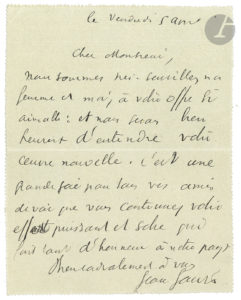 le Vendredi 5 avril
Cher Monsieur,
nous sommes très sensibles ma
femme et moi, à votre offre si
aimable : et nous serons bien
heureux d'entendre votre
œuvre nouvelle. C'est une
grande joie pour tous vos amis
de voir que vous continuez votre
effort puissant et
fait tant d'honneur à votre pays
à vous
Jean Jaurès